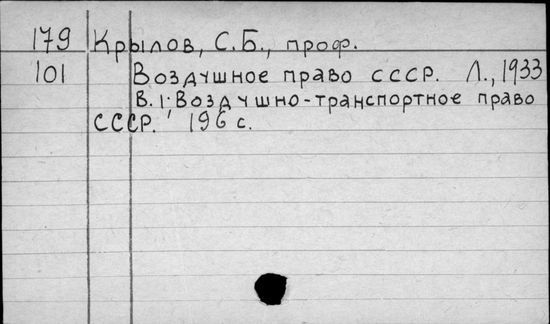 179 Крылов, С.Б., проф.
101 Воздушное право СССР. Л., 1933
В. 1. Воздушно-транспортное право
СССР. 196 с.